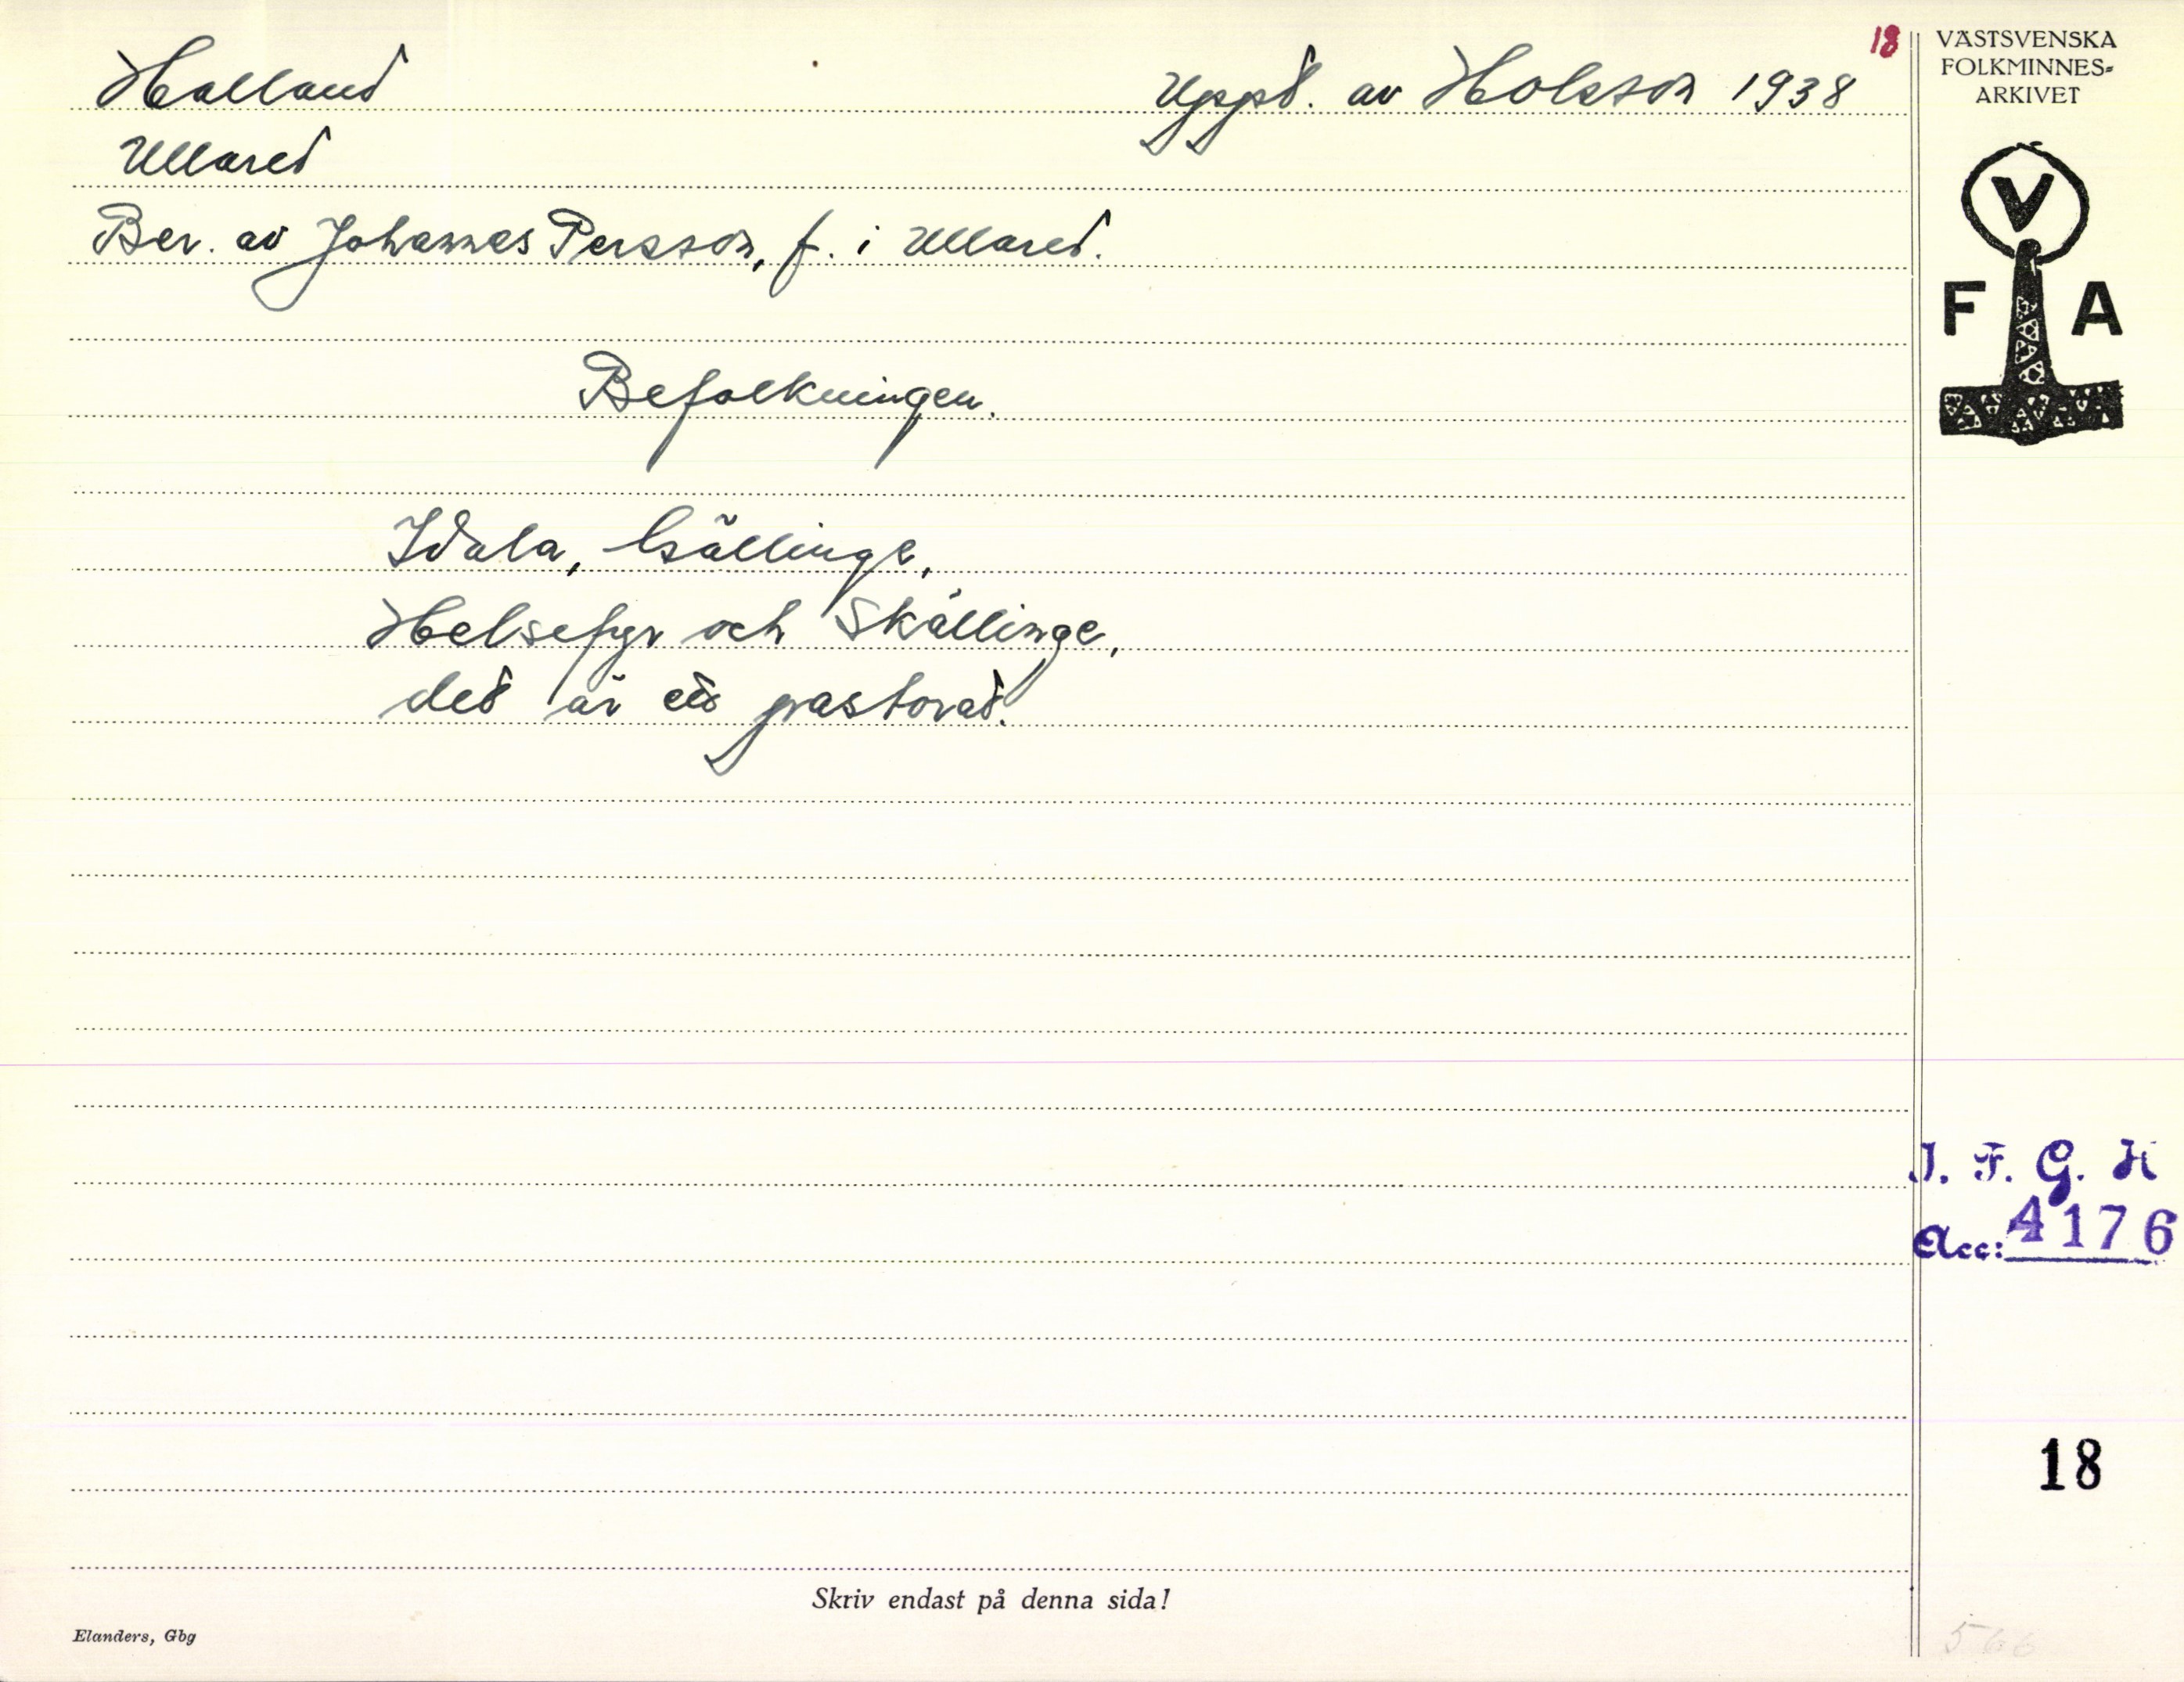 Halland
Uppt. av Holsson 1938
18
Ullared
Ber. av Johannes Persson, f. i Ullared.
Befolkningen.
Idala, Gällinge,
Helsefyr och Skällinge,
det är ett pastorat.
VÄSTSVENSKA
FOLKMINNES-
ARKIVET
V
F A
I. F. G. H
Acc: 4176
18
Skriv endast på denna sida!
Elanders, Gbg